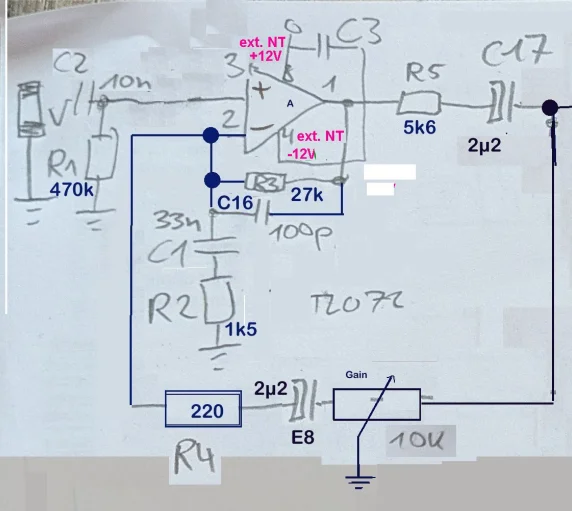 ext. NT
+12V
C3
C17
C2
10n
3
8
1
R5
+
A
V
2
−
4
ext. NT
-12V
5k6
2µ2
R1
470k
R3
27k
C16
100p
33n
C1
R2
1k5
TL072
Gain
2µ2
220
E8
10K
R4